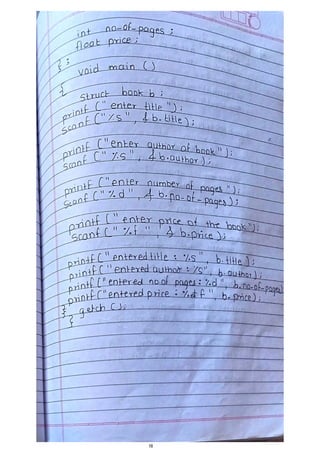 int no-of-pages ;
float price ;
} ;
void main ()
{
struct book b ;
printf (" enter title ") ;
scanf (" %s " , & b.title) ;
printf ("enter author of book") ;
scanf (" %s" , & b.author) ;
printf ("enter number of pages ") ;
scanf (" %d " , & b.no-of-pages) ;
printf (" enter price of the book") ;
scanf (" %f " , & b.price) ;
printf (" entered title : %s " , b.title) ;
printf (" entered author : %s" , b.author) ;
printf ("entered no.of pages : %d ", b.no-of-pages)
printf ("entered price : %f " , b.price) ;
getch () ;
}